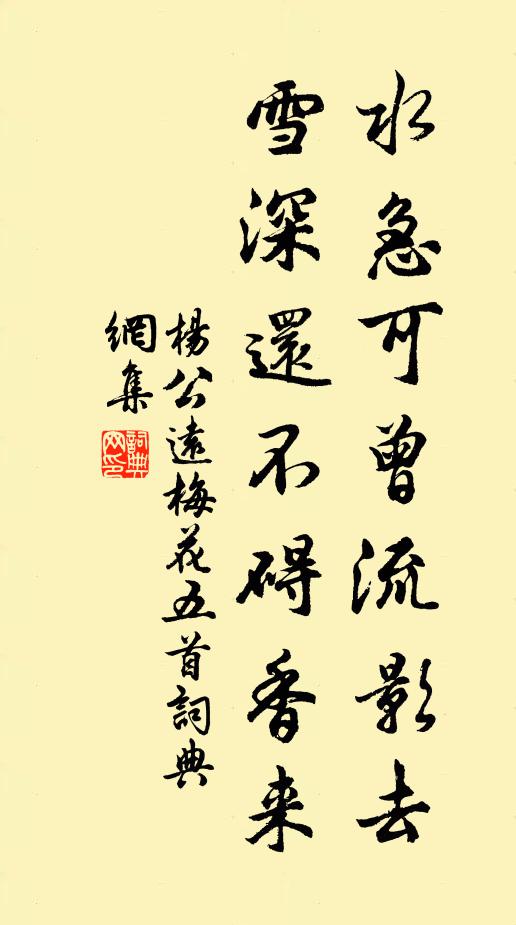 水急可曾流影去
雪深還不碍香来
楊公遠梅花五首詞典
網集
詞典
网印